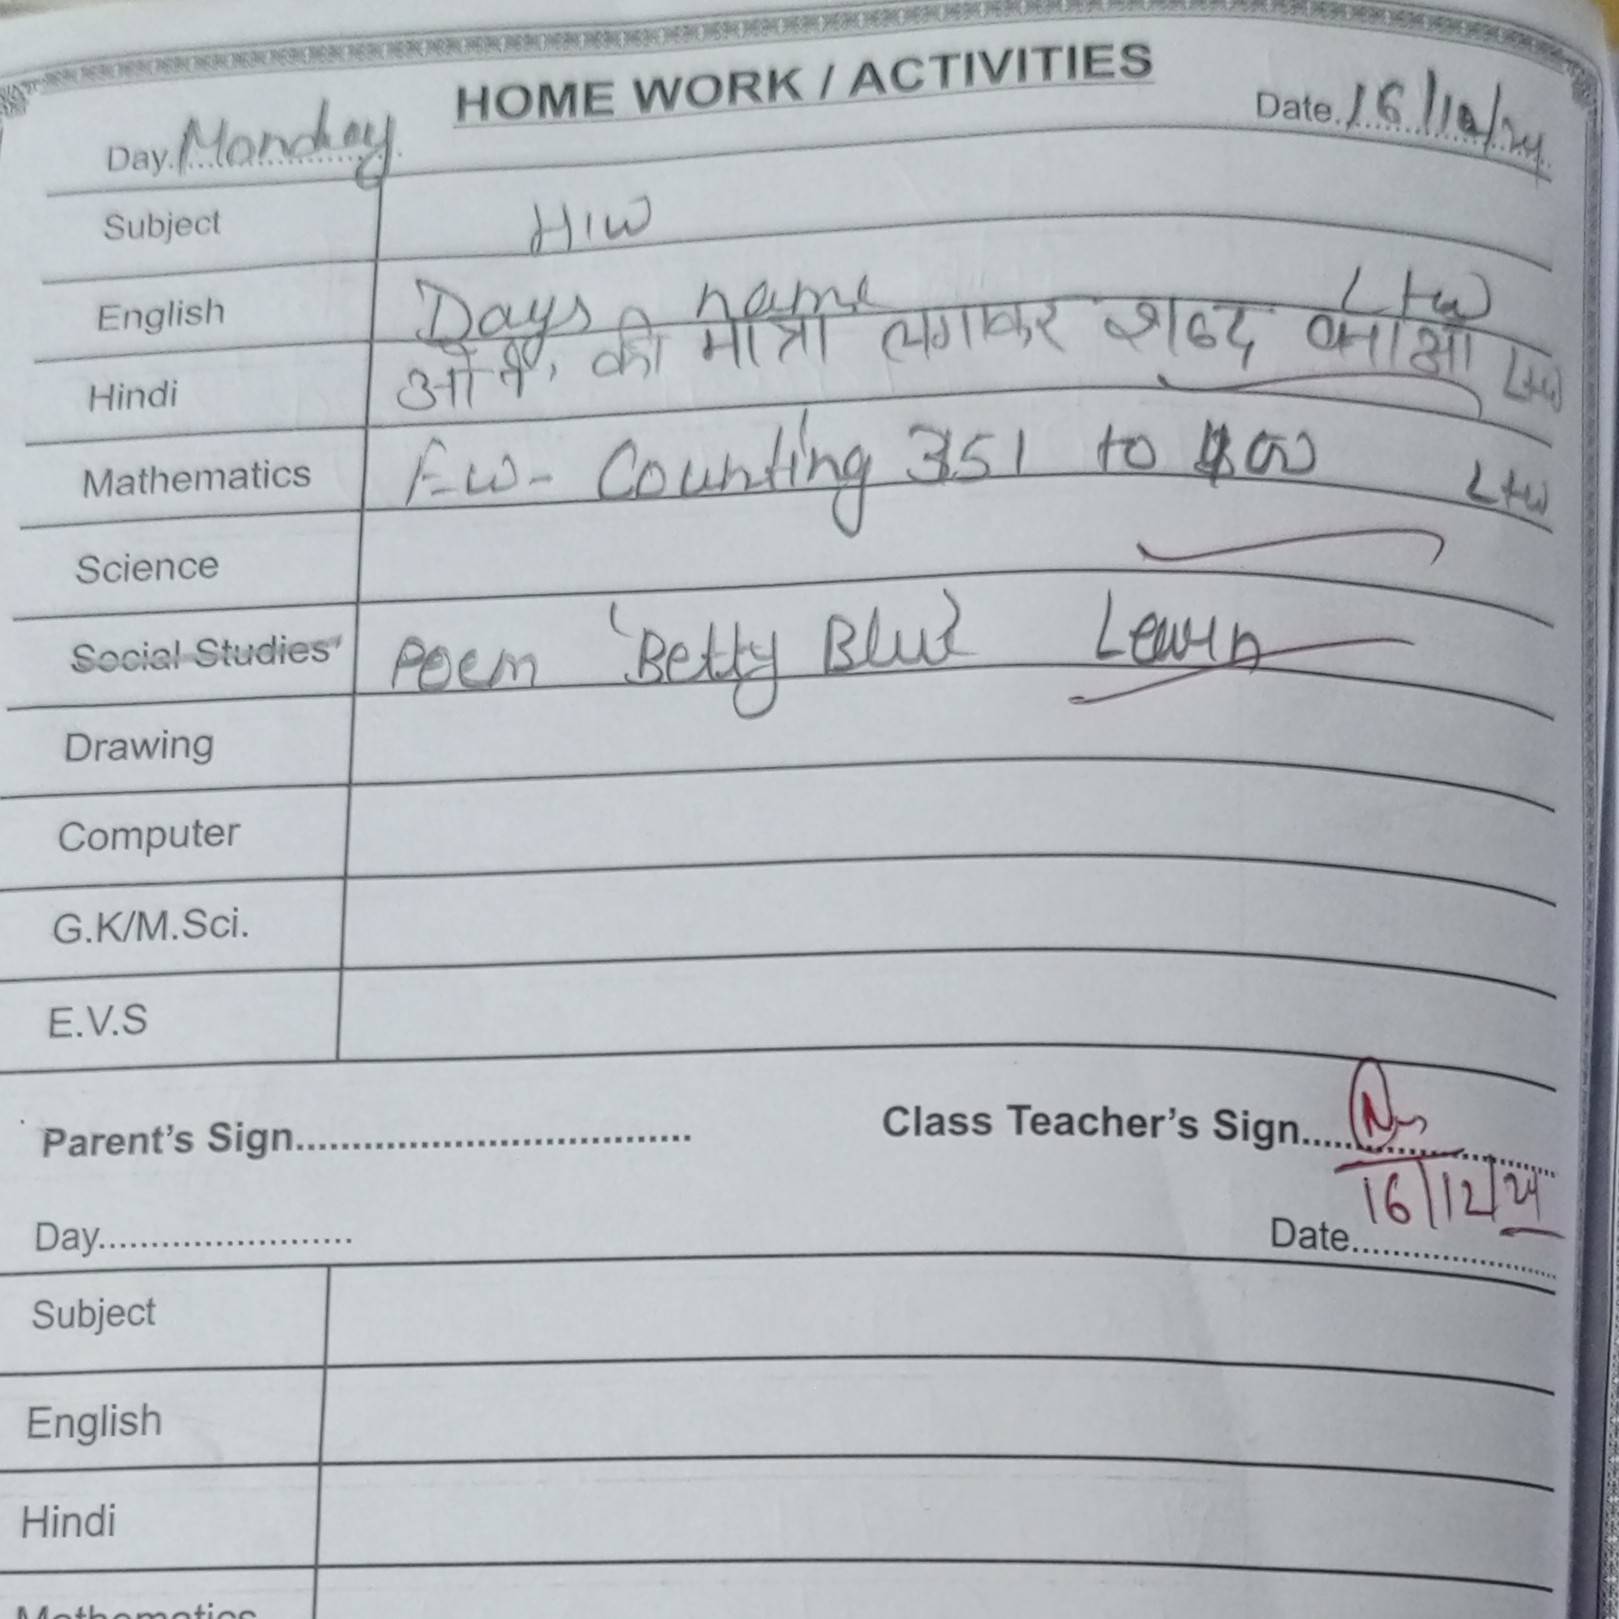 HOME WORK / ACTIVITIES
Day. Monday Date. 16/12/24
Subject H/W
English Days name L+W
Hindi की मात्रा लगाकर शब्द L+W
Mathematics F.W- Counting 351 to 400 L+W
Science
Social Studies Poem 'Betty Blue' Learn
Drawing
Computer
G.K/M.Sci.
E.V.S
Parent's Sign.................................... Class Teacher's Sign......................
16/12/24
Day........................ Date......................
Subject
English
Hindi
Mathematics